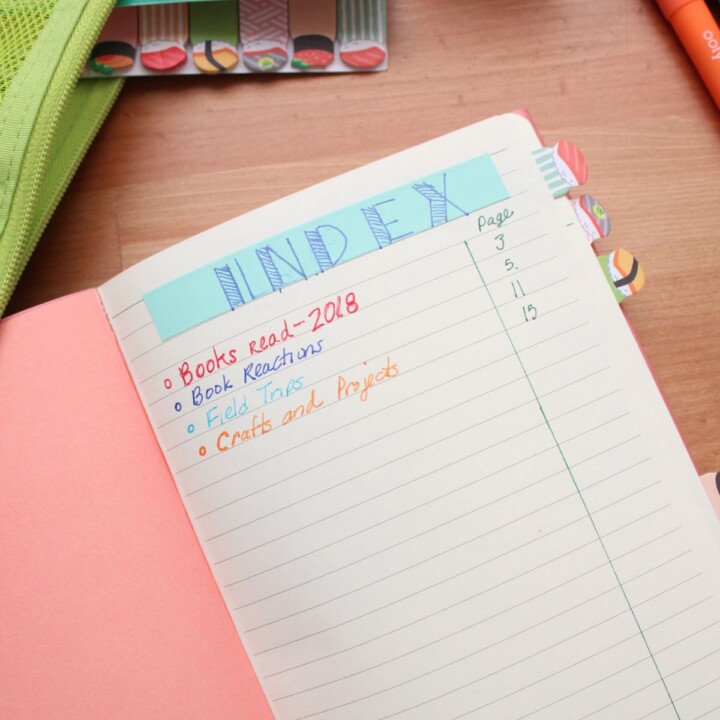 INDEX
Page
Books read-2018 3
Book Reactions 5.
Field Trips 11
Crafts and Projects 15
ooly